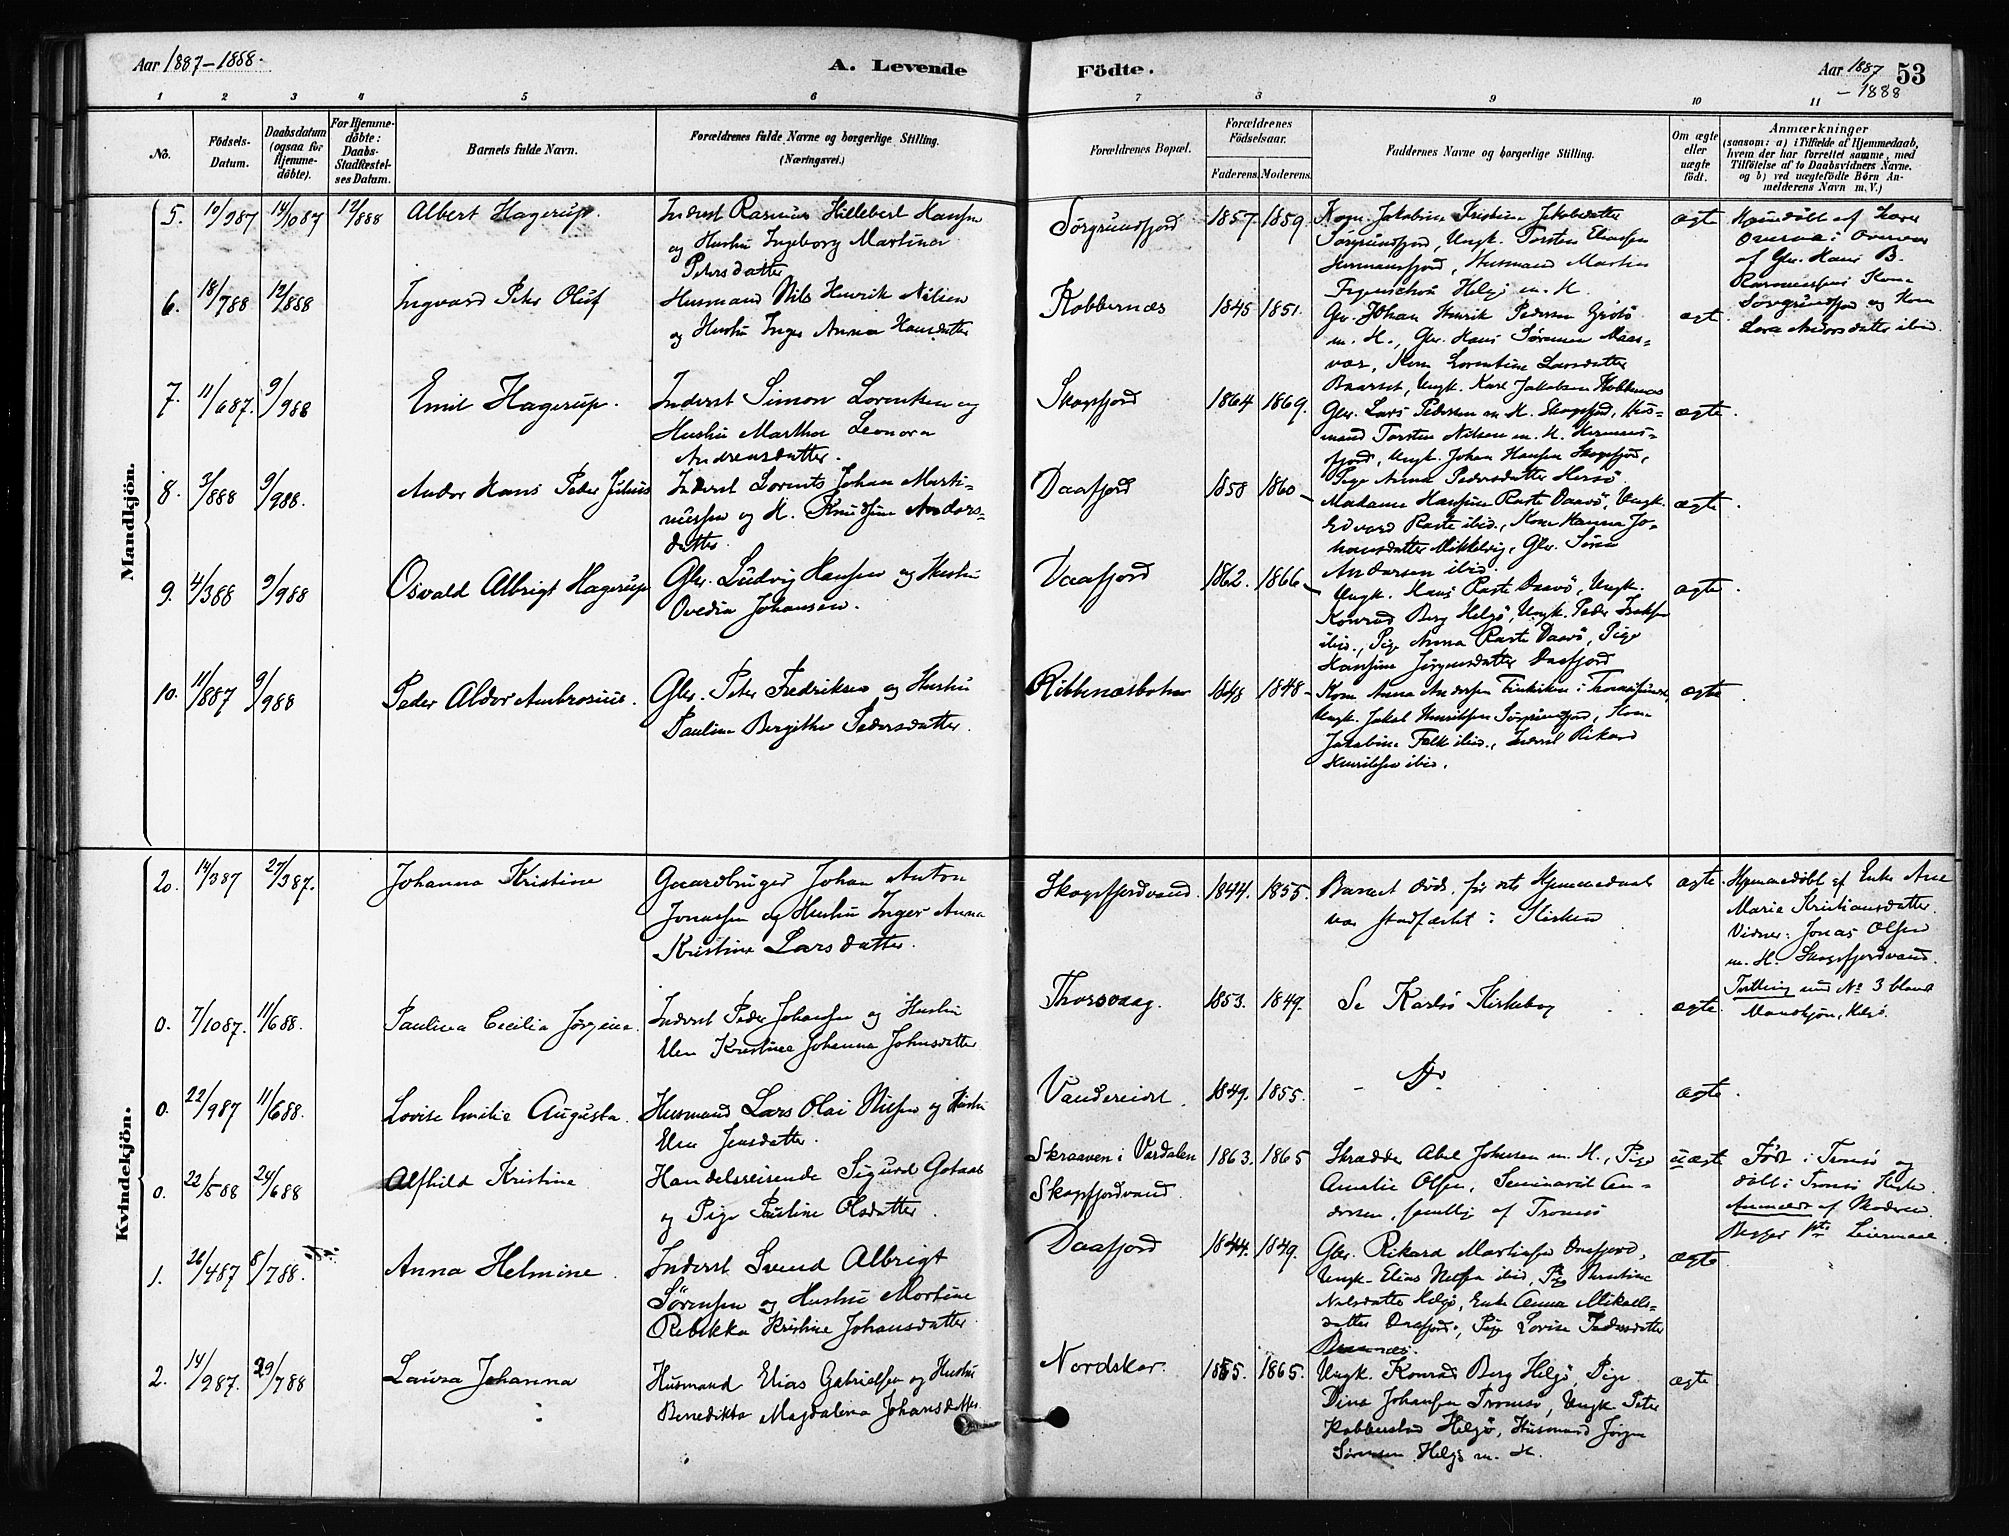 Aar 1887-1888.
A. Levende
Födte.
Aar 1887
-1888
53
1 2 3 4 5 6 7 8 9 10 11
No.
Födsels-
Datum.
Daabsdatum
(ogsaa for
Hjemme-
döbte).
For Hjemme-
döbte:
Daabs-
Stadfæstel-
ses Datum.
Barnets fulde Navn.
Forældrenes fulde Navne og borgerlige Stilling.
(Næringsvei.)
Forældrenes Bopæl.
Forældrenes
Födselsaar.
Faderens. Moderens.
Faddernes Navne og borgerlige Stilling.
Om ægte
eller
uægte
födt.
Anmærkninger
(saasom: a) i Tilfælde af Hjemmedaab,
hvem der har forrettet samme, med
Tilföielse af to Daabsvidners Navne,
og b) ved uægtefödte Börn An-
melderens Navn m. V.)
Mandkjön.
5. 10/987 14/1087 12/888 Albert Hagerup.
Inderst Rasmus Hillebert Hansen
og Hustru Ingeborg Martina
Petersdatter
Sørgrundfjord 1857. 1859.
Kone Jakobine Kristine Jakobsdatter
Sørgrundfjord, Ungk. Torsten Eliassen
Hermansfjord, Husmand Martin
Helgø m. H.
ægte
Hjemdøbt af
af Gbr. Hans B.
Rasmussen, Kone
Sørgrundfjord og Kone
Lova Andorsdatter ibid.
6. 18/788 12/888 Ingvard Peter Oluf
Husmand Nils Henrik Nilsen
og Hustru Inger Anna Hansdatter
Kobbernæs 1845 1851.
Gbr. Johan Henrik Pedersen Grötö
m. H., Gbr. Hans Sørensen Maas-
vær, Kone Lorentine Larsdatter
Ungk. Karl Jakobsen Kobbenæs
ægte
7. 11/687. 9/988 Emil Hagerup.
Inderst Simon Lorentsen og
Hustru Martha Leonora
Andreasdatter.
Skogsfjord 1864 1869.
Gbr. Lars Pedersen m. H. Skogsfjord, Hus-
mand Torsten Nilsen m. H. Hermans-
fjord, Ungk. Johan Hansen Skogsfjord,
Pige Anna Pedersdatter Hersö
ægte.
8. 3/888 9/988. Andor Hans Peder Julius
Inderst Lorents Johan Marti-
nussen og H. Knudsine Andors-
datter.
Daafjord 1858 1860
Madame Hansine Raste Daavö, Ungk.
Edvard Raste ibid., Kone Hanna Jo-
hansdatter Mikkelvig, Gbr. Sören
Andersen ibid.
ægte.
9. 4/388 9/988 Osvald Albrigt Hagerup
Gbr. Ludvig Hansen og Hustru
Ovedia Johansen.
Daafjord 1862. 1866
Ungk. Hans Raste Daavö, Ungk.
Konrad Berg Helgö, Ungk. Peder Isaksen
ibid., Pige Anna Raste Daavö, Pige
Hansine Jörgensdatter Daafjord
ægte.
10. 11/887 9/988 Peder Aldor Ambrosius.
Gbr. Peter Fredriksen og Hustru
Pauline Bergithe Pedersdatter.
Ribbenæsbotn 1848 1848
Kone Anna Andersen Finkiken i Tromsösundet,
Ungk. Jakob Henriksen Sørgrundfjord, Kone
Jakobine Falk ibid., Inderst Rikard
Henriksen ibid.
ægte
Kvindekjön.
20. 14/387 27/387. Johanna Kristine
Gaardbruger Johan Anton
Jonassen og Hustru Inger Anna
Kristine Larsdatter.
Skogsfjordvand. 1844. 1855.
Barnet døde, før dets Hjemmedaab
var stadfæstet i Kirken
ægte.
Hjemmedøbt af Enke Ane
Marie Kristiansdatter.
Vidner: Jonas Olsen
m. H. Skogsfjordvand.
0. 7/1087. 11/688. Paulina Cecilia Jørgine.
Inderst Peder Johansen og Hustru
Elen Kristine Johanna Johnsdatter
Thorsvaag. 1853. 1849.
Se Karlsö Kirkebog
ægte.
Tvilling med No 3 bland
Mandkjön, Helgö.
0. 22/987 11/688. Lovise Emilie Augusta.
Husmand Lars Olai Nilsen og Hustru
Elen Jensdatter.
Vandereiet. 1849. 1855.
- Do -
ægte.
0. 22/588 24/688 Alfhild Kristine
Handelsreisende Sigurd Gotaas
og Pige Pauline Olsdatter.
Skraaven i Værdalen
Skogsfjordvand.
1863. 1865
Skrædder Abel Johnsen m. H., Pige
Amalie Olsen, Seminarist An-
dersen, samtlig af Tromsö
uægte
Født i Tromsö og
døbt i Tromsö Kirke.
Anmeldt af Moderen.
Begges 1ste Leiermaal.
1. 26/487 8/788. Anna Helmine.
Inderst Svend Albrigt
Sörensen og Hustru Martine
Rebekka Kristine Johansdatter.
Daafjord 1844. 1849.
Gbr. Rikard Martinsen Daafjord,
Ungk. Elias Nilsen ibid, Pige Berntine
Nilsdatter Helgö, Enke Anna Mikaels-
datter Daafjord, Pige Lovise Pedersdatter
ægte
2. 14/987. 29/788 Laura Johanna
Husmand Elias Gabrielsen og Hustru
Benedikta Magdalena Johansdatter
Nordskar. 1855. 1865.
Ungk. Konrad Berg Helgö, Pige
Dina Johansen Tromsö, Ungk. Peter
Kobberstad Helgö, Husmand Jørgen
Sørensen Helgö m. H.
ægte